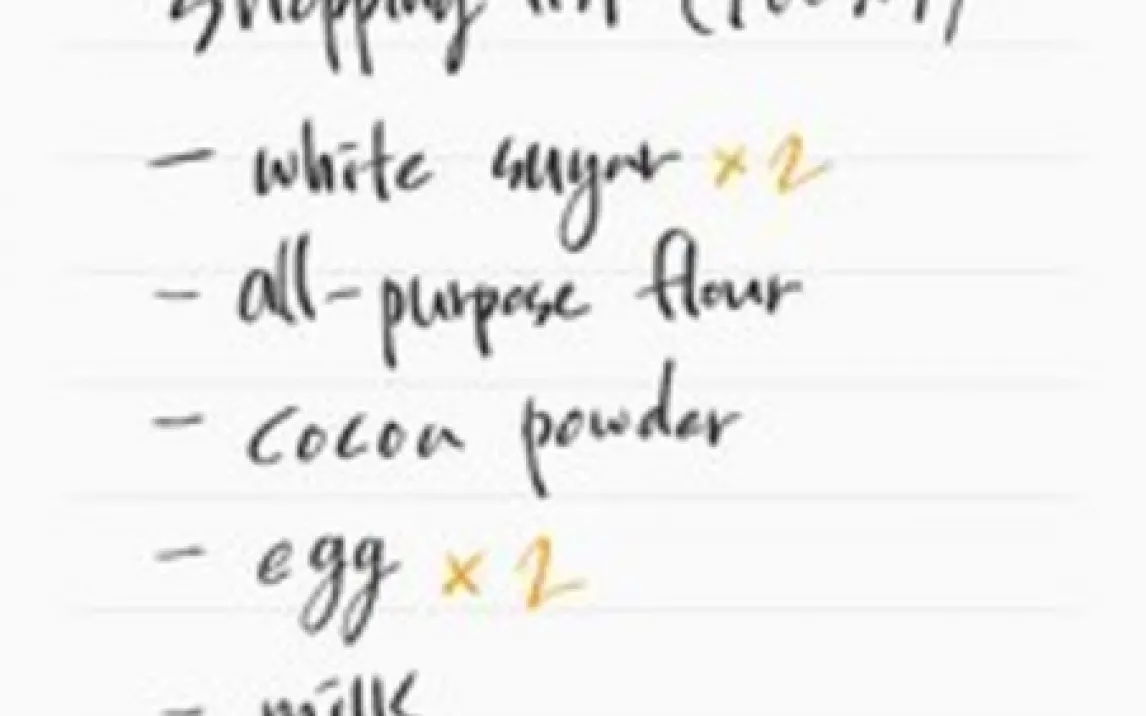 shopping list
- white sugar x 2
- all-purpose flour
- cocoa powder
- egg x 2
- milk